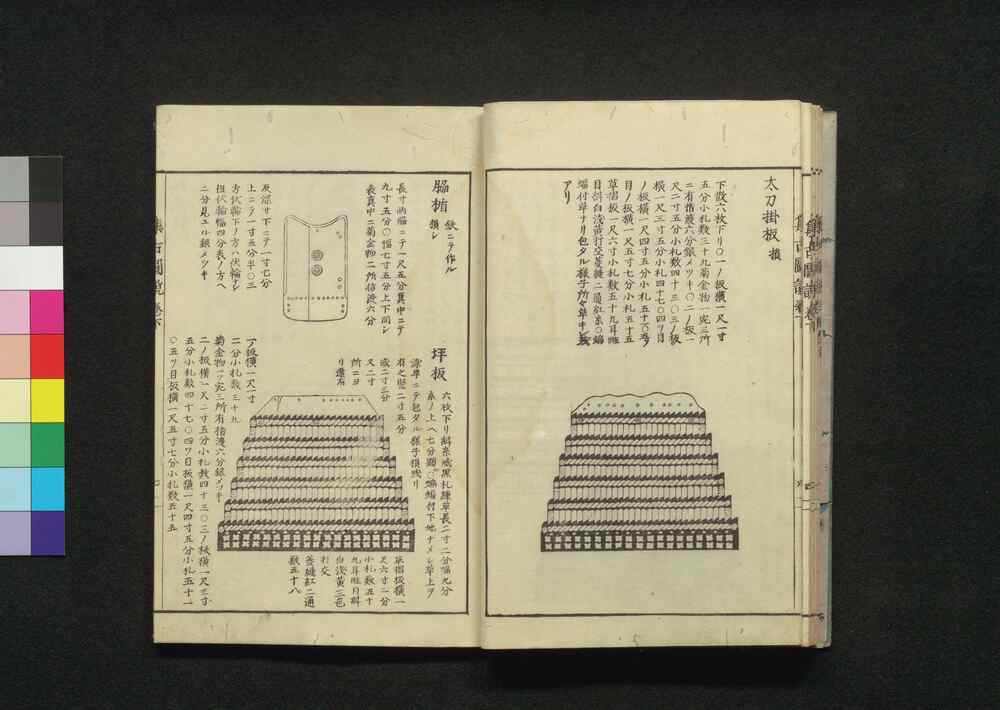 太刀掛板 損
下散六枚下リ〇一ノ板横一尺一寸
五分小札数三十九菊金物一完三所
ニ有指渡六分銀メツキ〇二ノ板一
尺二寸五分小札数四十三〇三ノ板
横一尺三寸五分小札四十七〇四ツ目
ノ板横一尺四寸五分小札五十一〇五ツ
目ノ板横一尺五寸七分小札五十五
草摺板一尺六寸小札数五十九耳
目斜白浅黄打交菱縫二通紅糸〇
アリ
脇楯 鉄ニテ作ル
損シ
長サ両脇ニテ一尺五分真中ニテ
九寸五分〇幅七寸五分上下同シ
表真中ニ菊金物二所指渡六分
及深サ下ニテ一寸七分
上ニテ一寸五分半〇三
方伏輪下ノ方ハ伏輪ナシ
但伏輪幅四分表ノ方ヘ
二分見ユル銀メツキ
坪板
六枚下リ斜糸威黒札練革長二寸二分幅九分
糸ノ上ヘ七分
革ニテ包タル様子損残リ
有之竪二寸五分
或二寸三分
又二寸
所ニヨ
リ違有
草摺板横一
尺六寸二分
小札数五十
九耳畦目斜
白浅黄三色
打交
菱縫紅二通
数五十八
一ノ板横一尺一寸
二分小札数三十九
菊金物一ツ完三所有指渡六分銀メツキ
二ノ板横一尺二寸五分小札数四十三〇三ノ板横一尺三寸
五分小札数四十七〇四ツ目板横一尺四寸五分小札五十一
〇五ツ目板横一尺五寸七分小札数五十五